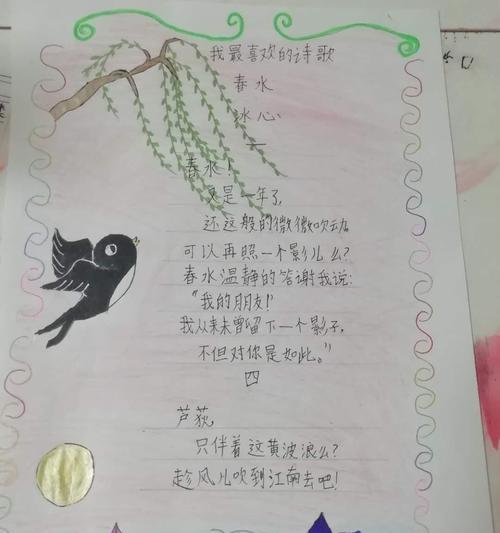 我最喜欢的诗歌
春水
冰心
一
春水!
又是一年了,
还这般的微微吹动
可以再照一个影儿么?
春水温静的答谢我说:
“我的朋友!
我从未曾留下一个影子,
不但对你是如此。”
四
芦荻,
只伴着这黄波浪么?
趁风儿吹到江南去吧!